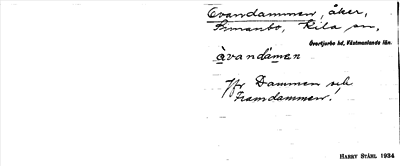 Evandammen, åker,
Simanbo, Kila sn,
Övertjurbo hd, Västmanlands län.
àvandä̀men
Jfr Dammen och
Framdammen!
HARRY STÅHL 1934